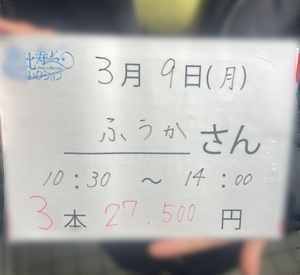 3月9日(月)
ふうかさん
10:30 ~ 14:00
3本 27.500円